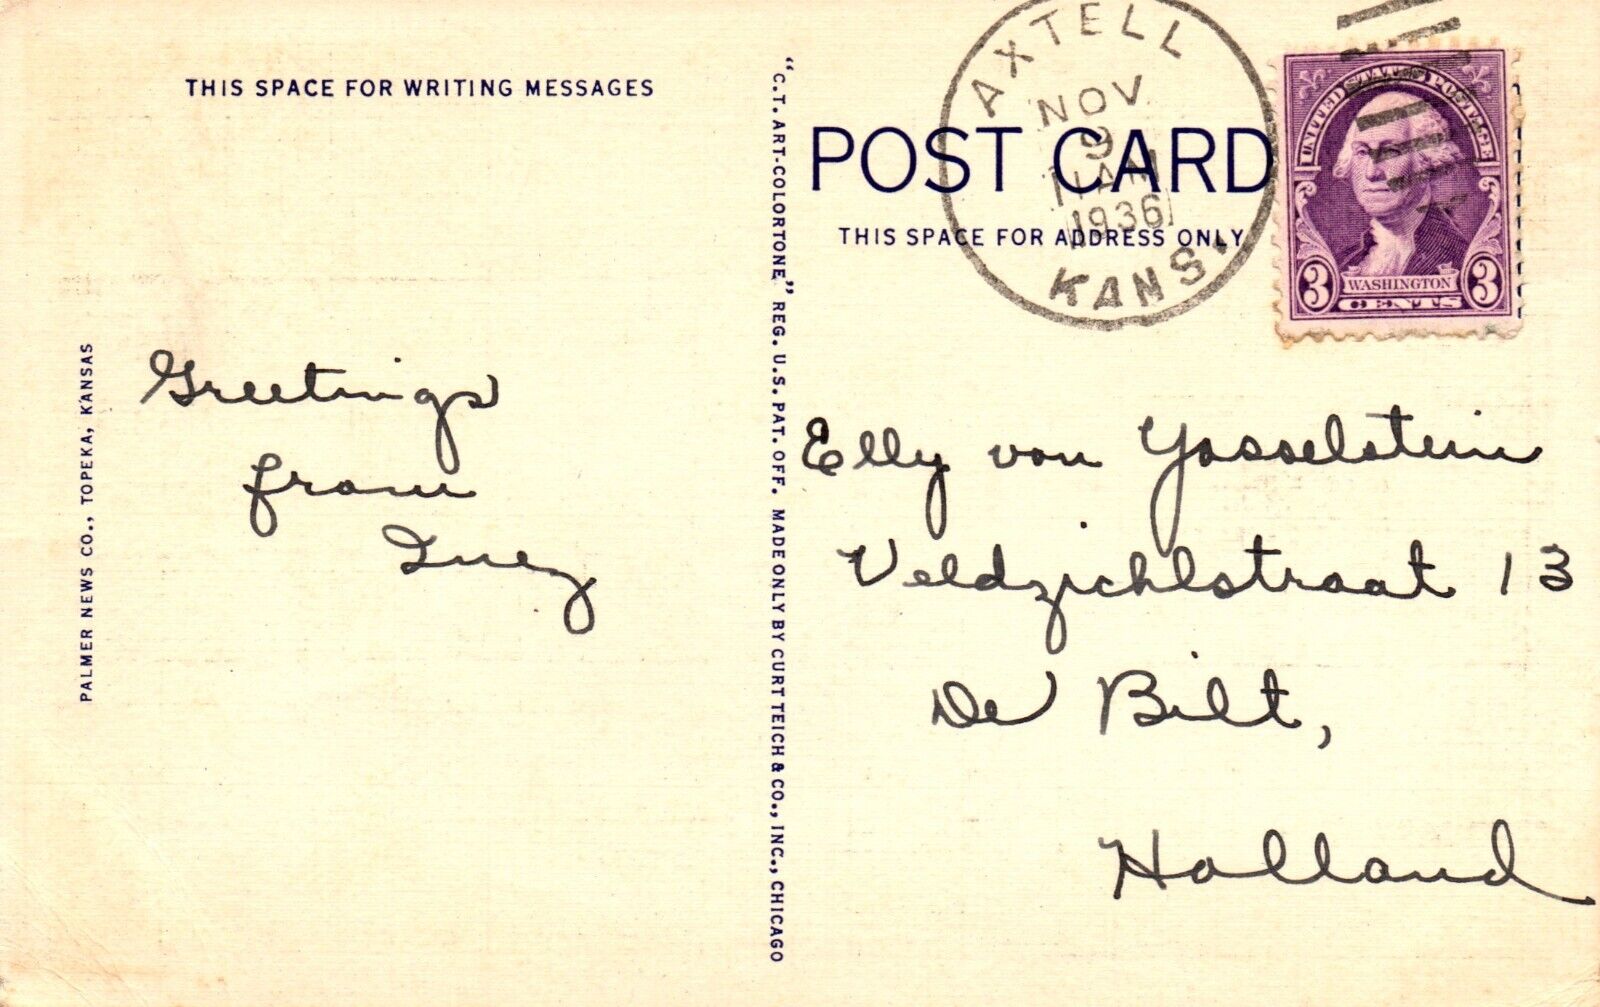 THIS SPACE FOR WRITING MESSAGES
Greetings
from
Inez
PALMER NEWS CO., TOPEKA, KANSAS
"C.T. ART-COLORTONE" REG. U.S. PAT. OFF. MADE ONLY BY CURT TEICH & CO., INC., CHICAGO
POST CARD
THIS SPACE FOR ADDRESS ONLY
AXTELL
NOV
9
11 AM
1936
KANS.
UNITED STATES POSTAGE
3 WASHINGTON 3
CENTS
Elly von Yosselstein
Veldzichlstraat 13
De Bilt,
Holland